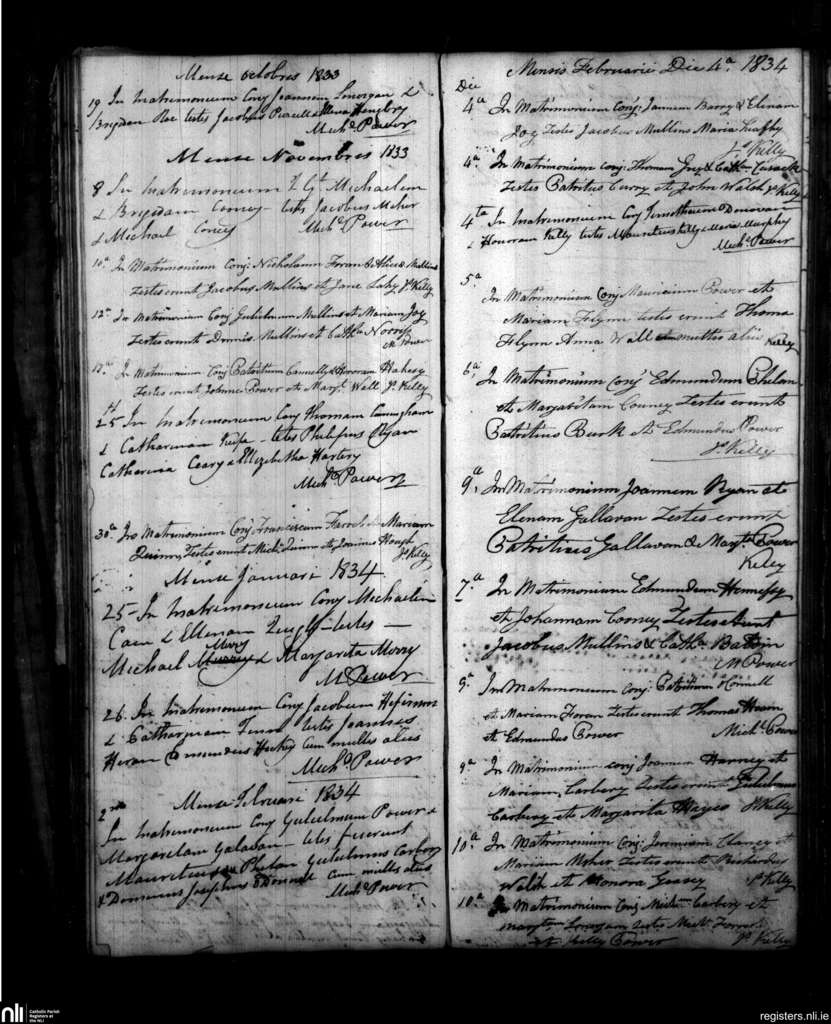 Mense octobris 1833
19 In Matrimonium Conj Joannem Lonrgan &
Brigdam Roe testes Jacobus Purcell &
Mich.l Power
Mense Novembris 1833
8 In Matrimonium Michaelem
& Brydam Comey testes Jacobus Meher
& Michael Comey Mich.l Power
10a In Matrimonium Conj: Nicholaum Foran & Alicia Mullins
Testes erunt Jacobus Mullins et Jane Lahy Js Kelly
12a In Matrimonium Conj Gulielmum Mullins et Mariam Joy
Testes erunt Dennis Mullins et Catha Norriss
M Power
In Matrimonium Conj Patritium Connelly & Honoram Flahesy
Testes erunt Johnne Power et Margt Wall Js Kelly
25 In Matrimonium Conj Thomam Cunningham
& Catharinam testes Philipus Ryan
Catharina Ceary & Elizabetha Hartery
Mich Power
30a In Matrimonium Conj Franciscum et Mariam
Quinn, Testes erunt Mich: Quinn et Joannes
Js Kelly
Mense Januari 1834
25 In Matrimonium Conj Michaelem
Cain & Ellenam testes
Morry
Michael Murrey & Margarita Morry
M Power
26 In Matrimonium Conj Jacobum Hefernon
& Catharinam testes Joannes
Heran Edmundus cum multis aliis
Mich Power
Mense Februari 1834
2
In Matrimonium Conj Gulielmum Power &
Margaretam Galavan testes fuerunt
Mauritius Phelan Gulielmus Carbery
& Domenus Josephus O Donnell cum multis aliis
Mich Power
Mensis Februarii Die 4a 1834
Die
4a In Matrimonium Conj: Joannem Barry & Elenam
Joy Testes Jacobus Mullins Maria
Js Kelly
4a In Matrimonium Conj: Thomam & Cathm Cusack
Testes Patritius Curry et John Walsh Js Kelly
4ta In Matrimonium Conj Timotheum Donovan
& Honoram Kelly testes Mauritius Kelly & Maria Murphy
Mich: Power
5a
In Matrimonium Conj Mauricium Power et
Mariam Flynn testes erunt Thomas
Flynn Anna Wall multis aliis Kelly
6a In Matrimonium conj Edmundum Phelan
et Margaritam Couney Testes erunt
Patritius Burk et Edmundus Power
Js Kelly
9a In Matrimonium Joannem Ryan et
Elenam Gallavan Testes erunt
Patritius Gallavan & Margt Power
Kelly
7a In Matrimonium Edmundum Hennessy
et Johannam Cooney Testes erunt
Jacobus Mullins & Catha Baldin
M Power
9a In Matrimonium Conj: Patritium Connell
et Mariam Foran Testes erunt Thomas
et Edmundus Power Mich: Power
9a In Matrimonium conj Joannem Harney et
Mariam Carbery Testes erunt Gulielmus
Carbery et Margarita Hayes Js Kelly
10a In Matrimonium Conj: Jeremiam Clancy et
Mariam Meher Testes erunt Richardus
Walsh et Honora Geasey Js Kelly
10a In Matrimonium Conj: Michm Carbery et
Margtm Lonergan testes Mich:
et Power Js Kelly
nli
Catholic Parish
Registers at
the NLI
registers.nli.ie